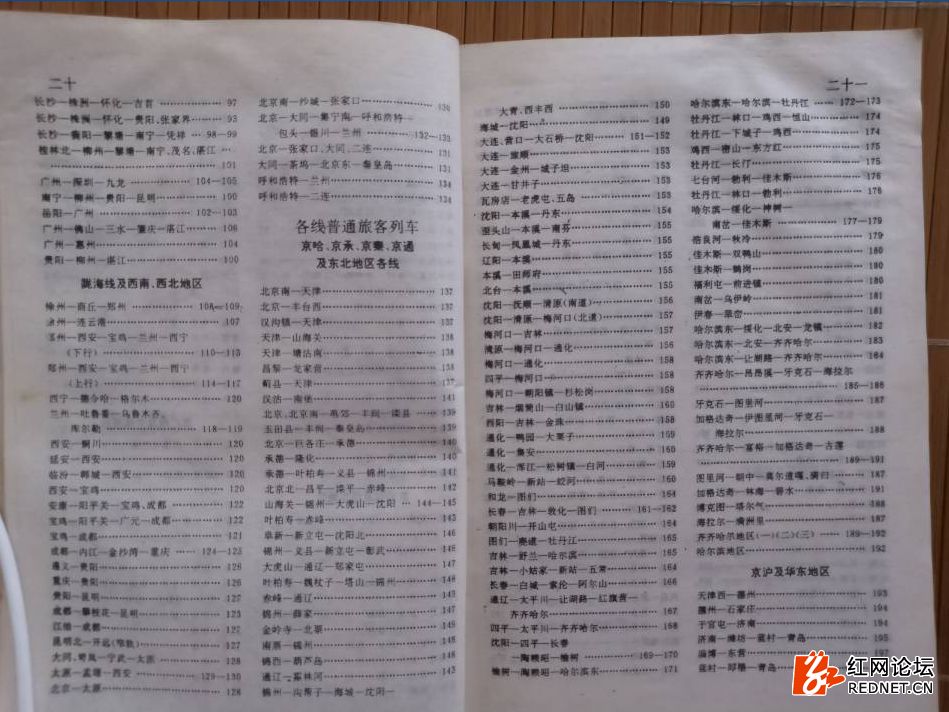 二十
长沙—株洲—怀化—吉首 ……… 97
长沙—株洲—怀化—贵阳、张家界 …… 93
长沙—衡阳—黎塘—南宁—凭祥 …… 98—99
桂林北—柳州—黎塘—南宁、茂名、湛江 …
……… 101
广州—深圳—九龙 ……… 104—105
南宁—柳州—贵阳—昆明 ……… 100
岳阳—广州 ……… 102—103
广州—佛山—三水—肇庆—湛江 ……… 106
广州—惠州 ……… 104
贵阳—柳州—湛江 ……… 100
陇海线及西南、西北地区
徐州—商丘—郑州 ……… 108—109
徐州—连云港 ……… 107
郑州—西安—宝鸡—兰州—西宁
(下行) ……… 110—113
郑州—西安—宝鸡—兰州—西宁
(上行) ……… 114—117
西宁—德令哈—格尔木 ……… 120
兰州—吐鲁番—乌鲁木齐、
库尔勒 ……… 118—119
西安—铜川 ……… 120
延安—西安 ……… 120
临汾—韩城—西安 ……… 120
西安—宝鸡 ……… 120
安康—阳平关—宝鸡、成都 ……… 122
宝鸡—阳平关—广元—成都 ……… 122
宝鸡—成都 ……… 121
成都—内江—金沙湾—重庆 ……… 124—123
遵义—贵阳 ……… 126
重庆—贵阳 ……… 126
贵阳—昆明 ……… 127
成都—攀枝花—昆明 ……… 125
成都 ……… 127
昆明北—开远(窄轨) ……… 127
大同、苛岚—宁武—太原 ……… 128
太原—孟塬—西安 ……… 129—130
北京—太原 ……… 128
北京南—沙城—张家口 ……… 130
北京—大同—集宁南—呼和浩特—
包头—银川—兰州 ……… 132—133
北京—张家口、大同、二连 ……… 131
大同—茶坞—北京东—秦皇岛 ……… 131
呼和浩特—兰州 ……… 134
呼和浩特—二连 ……… 134
各线普通旅客列车
京哈、京承、京秦、京通
及东北地区各线
北京南—天津 ……… 137
北京—丰台西 ……… 137
汉沟镇—天津 ……… 137
天津—山海关 ……… 138
天津—塘沽南 ……… 138
昌黎—龙家营 ……… 138
蓟县—天津 ……… 137
汉沽—南堡 ……… 141
北京、北京南—丰润—滦县 ……… 139
玉田县—丰润—秦皇岛 ……… 139
北京—巨各庄—承德 ……… 140
承德—隆化 ……… 140
承德—叶柏寿—义县—锦州 ……… 141
北京北—昌平—滦平—赤峰 ……… 142
山海关—锦州—大虎山—沈阳 …… 144—145
叶柏寿—赤峰 ……… 143
阜新—新立屯—沈阳北 ……… 146
锦州—义县—新立屯—彰武 ……… 146
大虎山—通辽—郑家屯 ……… 147
叶柏寿—魏杖子—塔山—锦州 ……… 148
赤峰—通辽 ……… 143
锦州—薛家 ……… 149
金岭寺—北票 ……… 148
南票—锦州 ……… 148
锦西—葫芦岛 ……… 148
通辽—霍林河 ……… 143
锦州—沟帮子—海城—沈阳—
二十一
大青、西丰西 ……… 150
海城—沈阳 ……… 149
大连、营口—大石桥—沈阳 ……… 151—152
大连—旅顺 ……… 153
大连—金州—城子坦 ……… 153
大连—甘井子 ……… 153
瓦房店—老虎屯、五岛 ……… 153
沈阳—本溪—丹东 ……… 154
歪头山—本溪—南芬 ……… 155
长甸—凤凰城—丹东 ……… 155
辽阳—本溪 ……… 155
本溪—田师府 ……… 155
北台—本溪 ……… 155
沈阳—抚顺—清原(南道) ……… 156
沈阳—清原—梅河口(北道) ……… 157
梅河口—吉林 ……… 157
清原—梅河口—通化 ……… 156
梅河口—通化 ……… 158
四平—梅河口 ……… 158
梅河口—朝阳镇—杉松岗 ……… 158
吉林—烟筒山—白山镇 ……… 160
西阳—吉林—金珠 ……… 158
通化—鸭园—大栗子 ……… 159
通化—集安 ……… 159
通化—浑江—松树镇—白河 ……… 159
马鞍岭—新站—蛟河 ……… 160
和龙—图们 ……… 164
长春—吉林—敦化—图们 ……… 161—162
朝阳川—开山屯 ……… 164
图们—鹿道—牡丹江 ……… 165
吉林—舒兰—哈尔滨 ……… 163
吉林—小姑家—新站—五常 ……… 164
长春—白城—索伦—阿尔山 ……… 166
通辽—太平川—让湖路—红旗营—
齐齐哈尔 ……… 167
四平—太平川—齐齐哈尔 ……… 168
沈阳—四平—长春
—陶赖昭—榆树 ……… 169—170
榆树—陶赖昭—哈尔滨东 ……… 171
哈尔滨东—哈尔滨—牡丹江 …… 172—173
牡丹江—林口—鸡西—恒山 ……… 174
牡丹江—下城子—鸡西 ……… 174
鸡西—密山—东方红 ……… 175
牡丹江—长汀 ……… 175
七台河—勃利—佳木斯 ……… 176
牡丹江—林口—勃利 ……… 176
哈尔滨—绥化—神树—
南岔—佳木斯 ……… 177—179
倍良河—秋冷 ……… 179
佳木斯—双鸭山 ……… 180
佳木斯—鹤岗 ……… 180
福利屯—前进镇 ……… 180
南岔—乌伊岭 ……… 181
伊春—翠峦 ……… 181
哈尔滨东—绥化—北安—龙镇 ……… 182
哈尔滨东—北安—齐齐哈尔 ……… 183
哈尔滨东—让湖路—齐齐哈尔 ……… 184
齐齐哈尔—昂昂溪—牙克石—海拉尔
……… 185—186
牙克石—图里河 ……… 187
加格达奇—伊图里河—牙克石—
海拉尔 ……… 188
齐齐哈尔—富裕—加格达奇—古莲
……… 189—191
图里河—朝中—莫尔道嘎、满归 …… 187
加格达奇—林海—碧水 ……… 191
博克图—塔尔气 ……… 188
海拉尔—满洲里 ……… 187
齐齐哈尔地区(一)(二)(三) …… 189—192
哈尔滨地区 ……… 192
京沪及华东地区
天津西—德州 ……… 193
德州—石家庄 ……… 194
于官屯—济南 ……… 194
济南—潍坊—蓝村—青岛 ……… 195
淄博—东营 ……… 197
蓝村—即墨—青岛
红网论坛
REDNET.CN